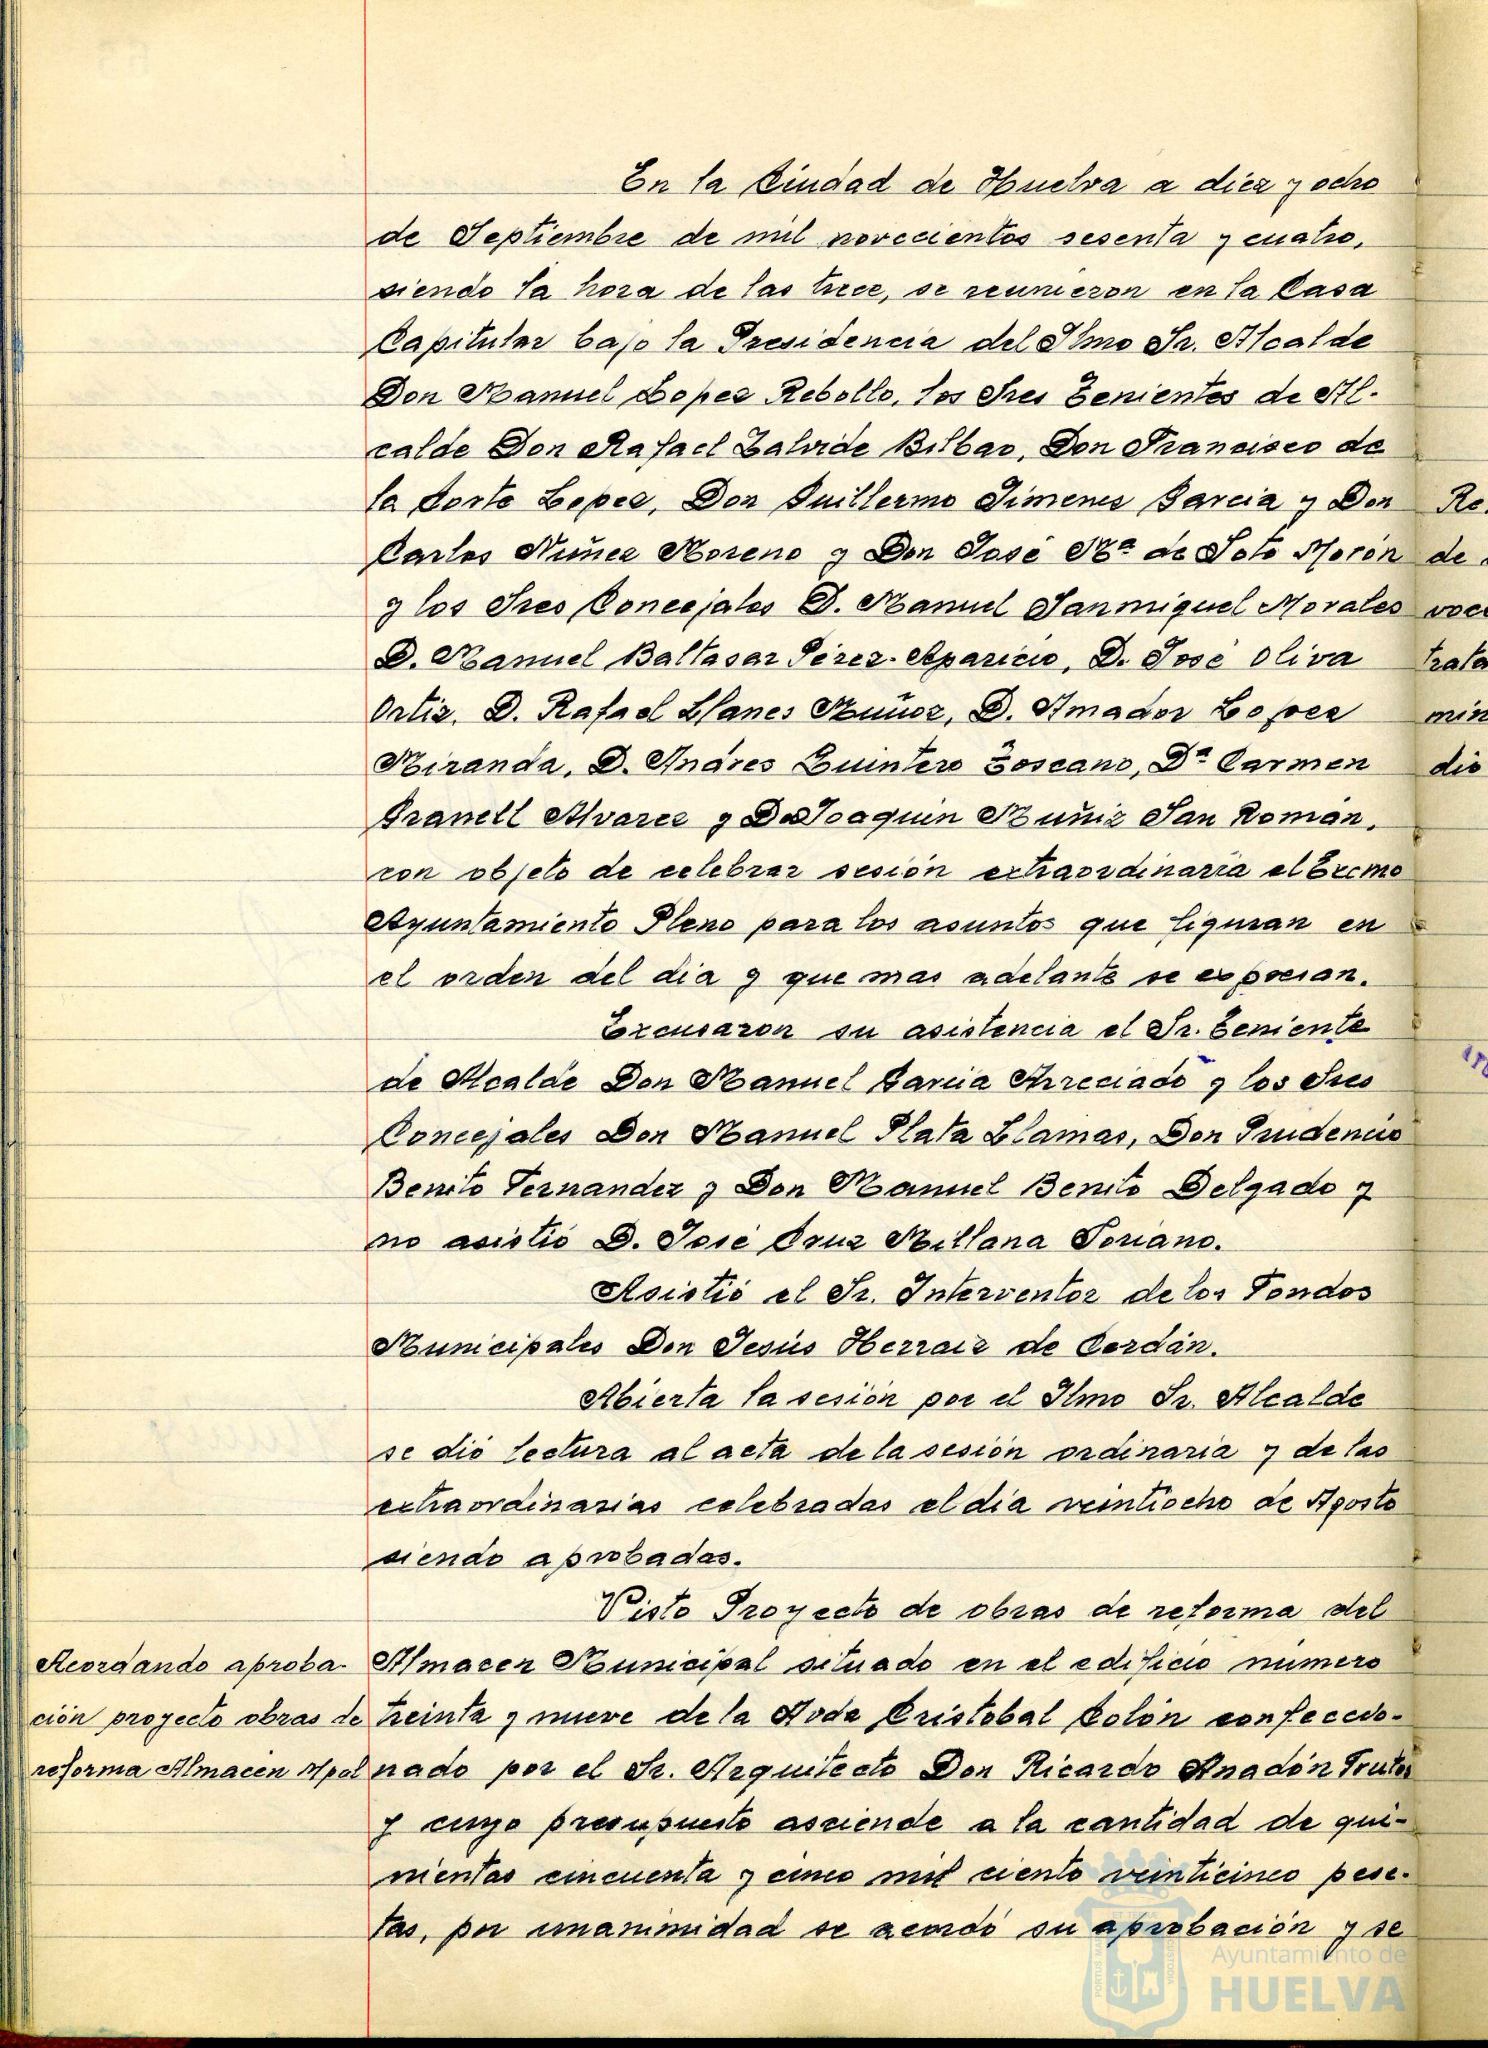 En la Ciudad de Huelva a diez y ocho
de Septiembre de mil novecientos sesenta y cuatro,
siendo la hora de las trece, se reunieron en la Casa
Capitular bajo la Presidencia del Ilmo Sr. Alcalde
Don Manuel Lopez Rebollo, los Sres Tenientes de Al-
calde Don Rafael Zalvide Bilbao, Don Francisco de
la Corte Lopez, Don Guillermo Jimenez Garcia y Don
Carlos Nuñez Moreno y Don José Mª de Soto Morón
y los Sres Concejales D. Manuel Sanmiguel Morales
D. Manuel Baltasar Pérez-Aparicio, D. José Oliva
Ortiz, D. Rafael Llanes Muñoz, D. Amador Lopez
Miranda, D. Andres Quintero Toscano, Dª Carmen
Granell Alvarez y D. Joaquin Muñiz San Román,
con objeto de celebrar sesión extraordinaria el Excmo
Ayuntamiento Pleno para los asuntos que figuran en
el orden del dia y que mas adelante se expresan.
Excusaron su asistencia el Sr. Teniente
de Alcalde Don Manuel Garcia Arreciado y los Sres
Concejales Don Manuel Plata Llamas, Don Prudencio
Benito Fernandez y Don Manuel Benito Delgado y
no asistió D. José Cruz Millana Soriano.
Asistió el Sr. Interventor de los Fondos
Municipales Don Jesús Herraiz de Cerdán.
Abierta la sesión por el Ilmo Sr. Alcalde
se dió lectura al acta de la sesión ordinaria y de las
extraordinarias celebradas el dia veintiocho de Agosto
siendo aprobadas.
Visto Proyecto de obras de reforma del
Acordando aproba-
ción proyecto obras de
reforma Almacén Mpal
Almacen Municipal situado en el edificio número
treinta y nueve de la Avda Cristobal Colón confeccio-
nado por el Sr. Arquitecto Don Ricardo Anadón Frutos
y cuyo presupuesto asciende a la cantidad de qui-
nientas cincuenta y cinco mil ciento veinticinco pese-
tas, por unanimidad se acordó su aprobación y se
Re.
de
voc
trata
min
dio
Ayuntamiento de
HUELVA